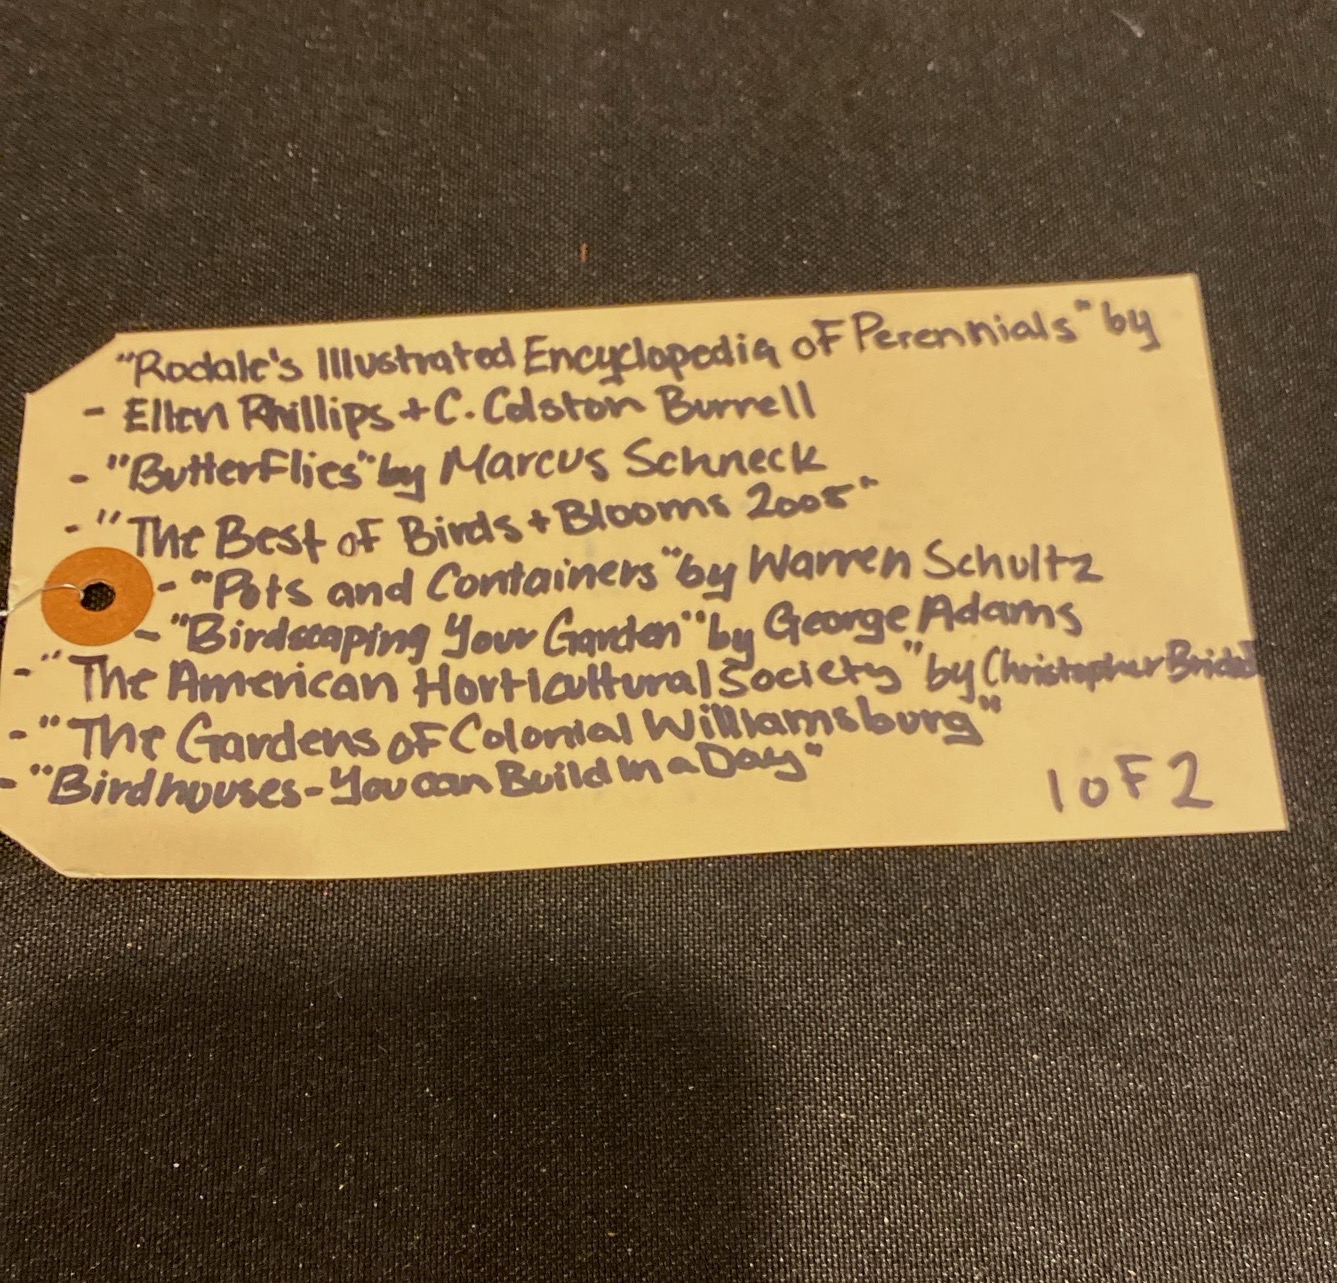 "Rodale's Illustrated Encyclopedia of Perennials" by
- Ellen Phillips + C. Colston Burrell
- "Butterflies" by Marcus Schneck
- "The Best of Birds + Blooms 2005"
- "Pots and Containers" by Warren Schultz
- "Birdscaping Your Garden" by George Adams
- "The American Horticultural Society" by Christopher
- "The Gardens of Colonial Williamsburg"
- "Birdhouses - You can Build In a Day"
1 of 2